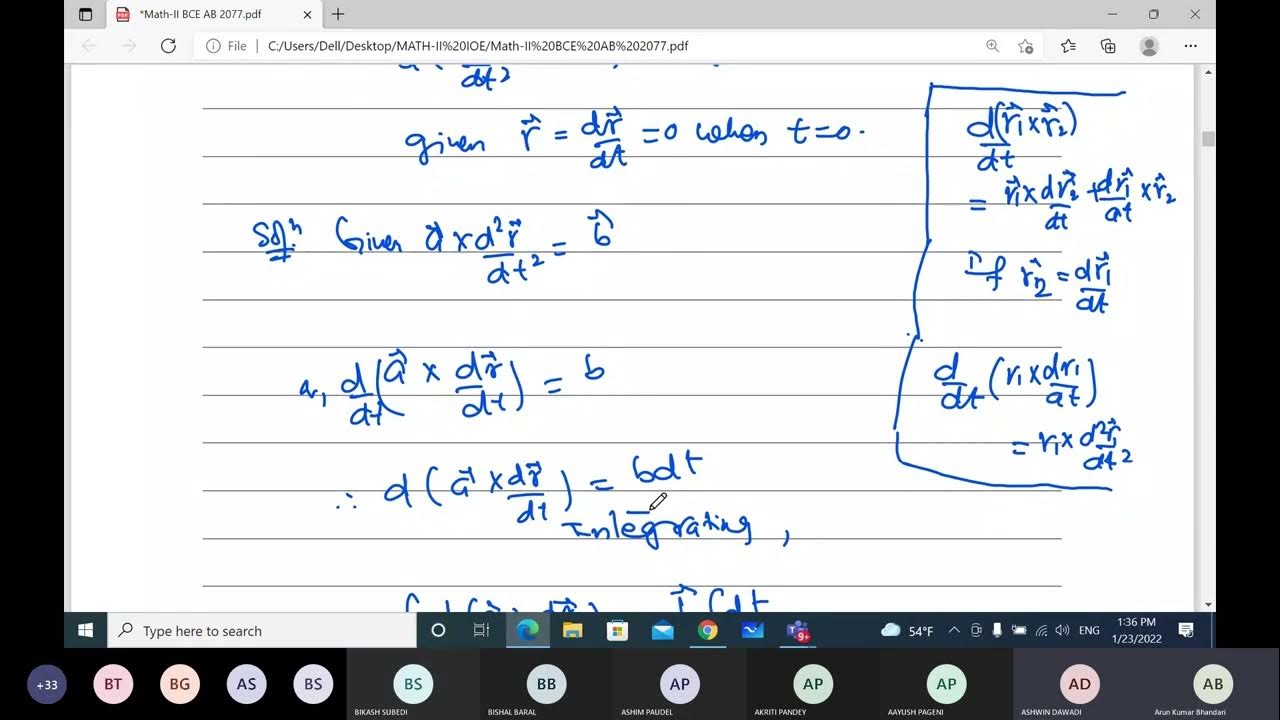 *Math-II BCE AB 2077.pdf
File
C:/Users/Dell/Desktop/MATH-II%20IOE/Math-II%20BCE%20AB%202077.pdf
dt²
given r⃗ = dr⃗/dt = 0 when t=0.
Solⁿ Given a⃗ × d²r⃗/dt² = b⃗
or, d/dt (a⃗ × dr⃗/dt) = b
∴ d(a⃗ × dr⃗/dt) = bdt
Integrating,
d(r⃗₁ × r⃗₂)/dt
= r⃗₁ × dr⃗₂/dt + dr⃗₁/dt × r⃗₂
If r⃗₂ = dr⃗₁/dt
d/dt (r₁ × dr₁/dt)
= r₁ × d²r⃗₁/dt²
Type here to search
9+
54°F
ENG
1:36 PM
1/23/2022
+33
BT
BG
AS
BS
BS
BIKASH SUBEDI
BB
BISHAL BARAL
AP
ASHIM PAUDEL
AP
AKRITI PANDEY
AP
AAYUSH PAGENI
AD
ASHWIN DAWADI
AB
Arun Kumar Bhandari